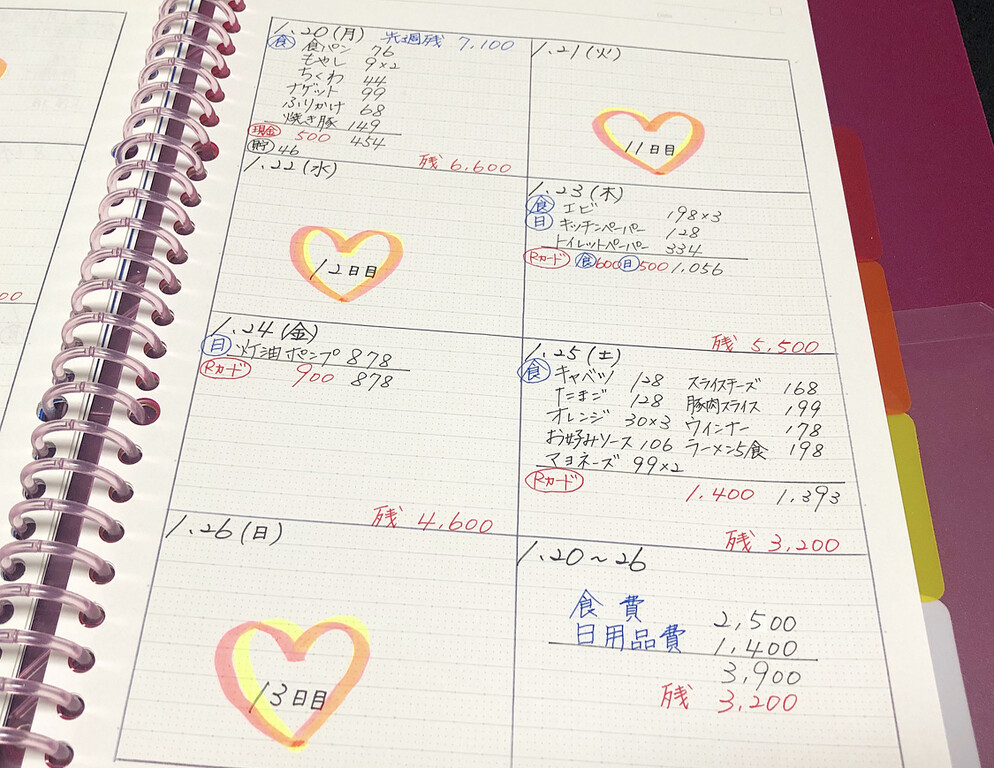 1.20(月) 先週残 7,100
食 食パン 76
もやし 9×2
ちくわ 44
ナゲット 99
ふりかけ 68
焼き豚 149
現金 500 454
貯 46
残 6,600
1.21(火)
11日目
1.22(水)
12日目
1.23(木)
食 エビ 198×3
日 キッチンペーパー 128
トイレットペーパー 334
Rカード 食600 日500 1,056
残 5,500
1.24(金)
日 灯油ポンプ 878
Rカード 900 878
残 4,600
1.25(土)
食 キャベツ 128 スライスチーズ 168
たまご 128 豚肉スライス 199
オレンジ 30×3 ウインナー 178
お好みソース 106 ラーメン5食 198
マヨネーズ 99×2
Rカード 1,400 1,393
残 3,200
1.26(日)
13日目
1.20~26
食費 2,500
日用品費 1,400
3,900
残 3,200